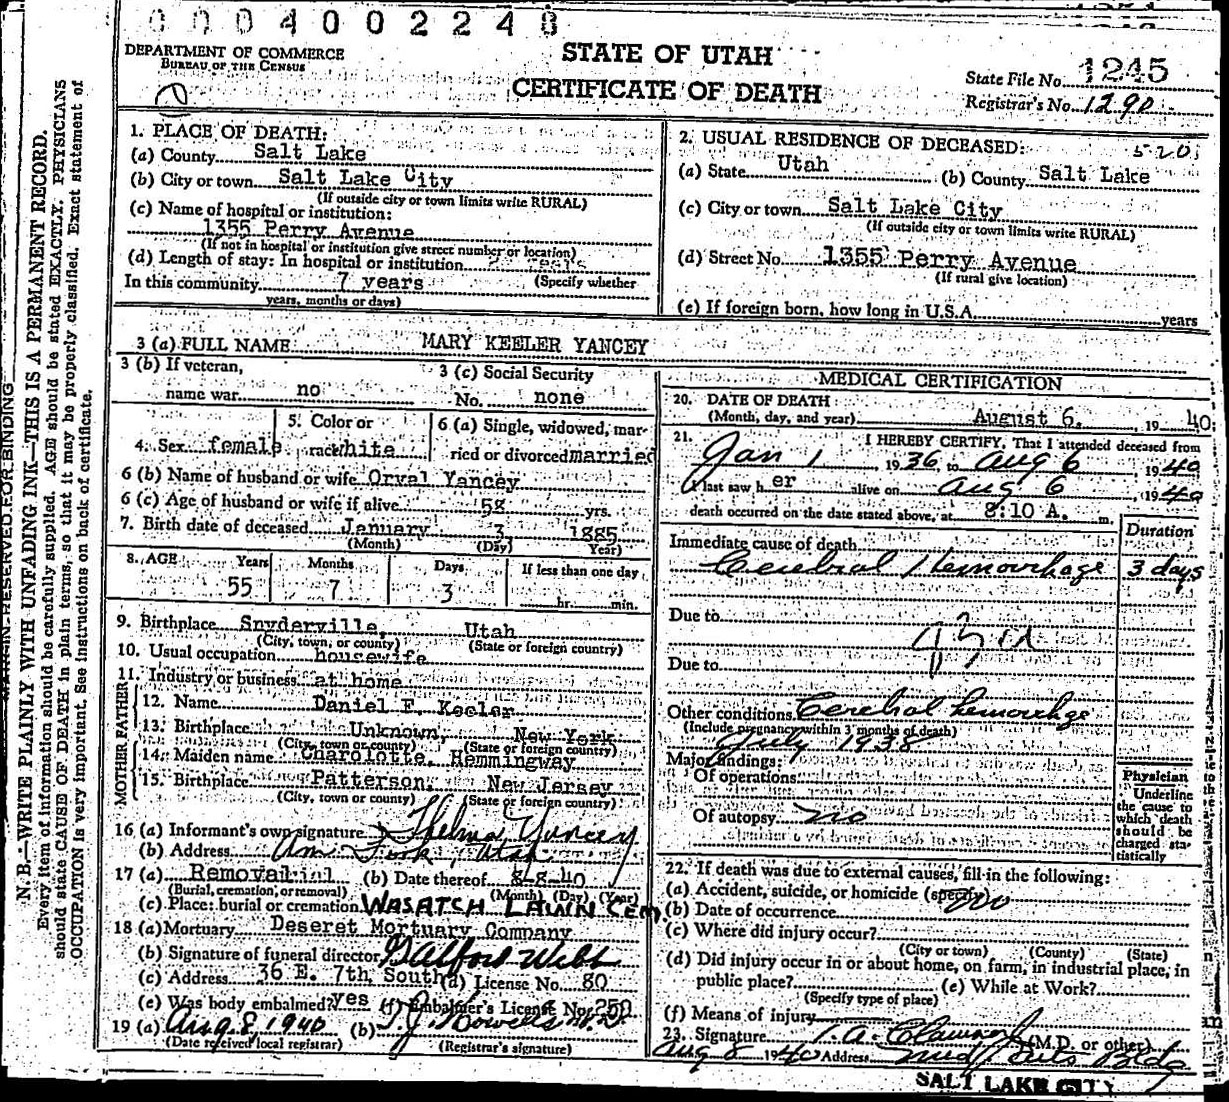 0004002240
DEPARTMENT OF COMMERCE
BUREAU OF THE CENSUS
STATE OF UTAH
CERTIFICATE OF DEATH
State File No. 1245
Registrar's No. 1290
MARGIN RESERVED FOR BINDING
N. B.—WRITE PLAINLY WITH UNFADING INK—THIS IS A PERMANENT RECORD.
Every item of information should be carefully supplied. AGE should be stated EXACTLY. PHYSICIANS
should state CAUSE OF DEATH in plain terms, so that it may be properly classified. Exact statement of
OCCUPATION is very important. See instructions on back of certificate.
1. PLACE OF DEATH:
(a) County Salt Lake
(b) City or town Salt Lake City
(If outside city or town limits write RURAL)
(c) Name of hospital or institution:
1355 Perry Avenue
(If not in hospital or institution give street number or location)
(d) Length of stay: In hospital or institution
(Specify whether
In this community 7 years
years, months or days)
2. USUAL RESIDENCE OF DECEASED:
520
(a) State Utah (b) County Salt Lake
(c) City or town Salt Lake City
(If outside city or town limits write RURAL)
(d) Street No. 1355 Perry Avenue
(If rural give location)
(e) If foreign born, how long in U.S.A. years
3 (a) FULL NAME MARY KEELER YANCEY
3 (b) If veteran, name war no
3 (c) Social Security No. none
4. Sex female
5. Color or race white
6 (a) Single, widowed, married or divorced married
6 (b) Name of husband or wife Orval Yancey
6 (c) Age of husband or wife if alive 58 yrs.
7. Birth date of deceased January 3 1885
(Month) (Day) Year)
8. AGE Years Months Days If less than one day
55 7 3 hr. min.
9. Birthplace Snyderville, Utah
(City, town, or county) (State or foreign country)
10. Usual occupation housewife
11. Industry or business at home
FATHER
12. Name Daniel F. Keeler
13. Birthplace Unknown, New York
(City, town or county) (State or foreign country)
MOTHER
14. Maiden name Charolotte Hemmingway
15. Birthplace Patterson, New Jersey
(City, town or county) (State or foreign country)
16 (a) Informant's own signature X Thelma Yancey
(b) Address Am Fork, Utah
17 (a) Removal (b) Date thereof 8-8-40
(Burial, cremation, or removal) (Month) (Day) (Year)
(c) Place: burial or cremation WASATCH LAWN CEM
18 (a) Mortuary Deseret Mortuary Company
(b) Signature of funeral director Webb
(c) Address 36 E. 7th South (d) License No. 80
(e) Was body embalmed? yes (f) Embalmer's License No. 250
19 (a) Aug. 8, 1940 (b)
(Date received local registrar) (Registrar's signature)
MEDICAL CERTIFICATION
20. DATE OF DEATH
(Month, day, and year) August 6, 1940
21. I HEREBY CERTIFY, That I attended deceased from
Jan 1 1936 to Aug 6 1940
I last saw her alive on Aug 6, 1940
death occurred on the date stated above, at 8:10 A. m.
Duration
Immediate cause of death
Cerebral Hemorrhage 3 days
Due to
Due to
Other conditions Cerebral hemorrhage
(Include pregnancy within 3 months of death)
July 1938
Major findings:
Of operations
Of autopsy no
Physician
Underline
the cause to
which death
should be
charged sta-
tistically
22. If death was due to external causes, fill in the following:
(a) Accident, suicide, or homicide (specify) no
(b) Date of occurrence
(c) Where did injury occur?
(City or town) (County) (State)
(d) Did injury occur in or about home, on farm, in industrial place, in
public place? (e) While at Work?
(Specify type of place)
(f) Means of injury
23. Signature (M.D. or other)
Aug 8 1940 Address Med Arts Bldg
SALT LAKE CITY